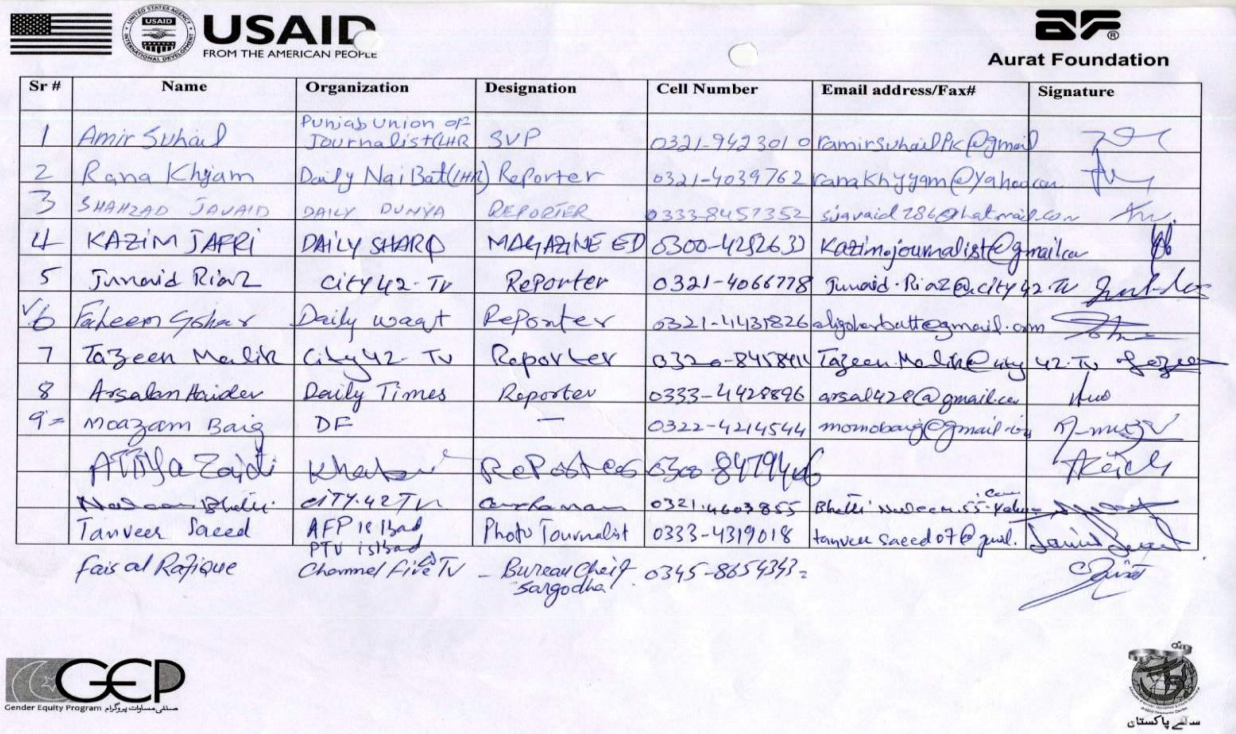 USAID
FROM THE AMERICAN PEOPLE
Aurat Foundation
Sr # Name Organization Designation Cell Number Email address/Fax# Signature
1 Amir Suhail Punjab Union of Journalist(LHR SVP 0321-9423010 ramirsuhailpk@gmail
2 Rana Khyam Daily Nai Bat(LHR) Reporter 0321-4039762 ranakhyyam@yahoo.com
3 SHAHZAD JAVAID DAILY DUNYA REPORTER 0333-8457352 sjavaid786@hotmail.com
4 KAZIM JAFRI DAILY SHARQ MAGAZINE ED 0300-4252633 Kazimjournalist@gmail.com
5 Junaid Riaz City 42-TV Reporter 0321-4066778 Junaid.Riaz@city42.TV
6 Faheem Gohar Daily waqt Reporter 0321-4431826 aligoharbutt@gmail.com
7 Tazeen Malik City 42-TV Reporter Tazeen Malik@city 42.TV
8 Arsalan Haider Daily Times Reporter 0333-4428896 arsal428@gmail.com
9= Moazam Baig DF — 0322-4214544 momobaig@gmail.com
Atiya Zaidi Reporter
Nadeem Bhatti CITY.42 TV 0321.4603855
Tanveer Saeed AFP isbad Photo Journalist 0333-4319018 tanveersaeed07@gmil.
PTV isbad
Faisal Rafique Channel Five TV - Bureau Cheif 0345-8654343
Sargodha
GEP
Gender Equity Program صنفی مساوات پروگرام